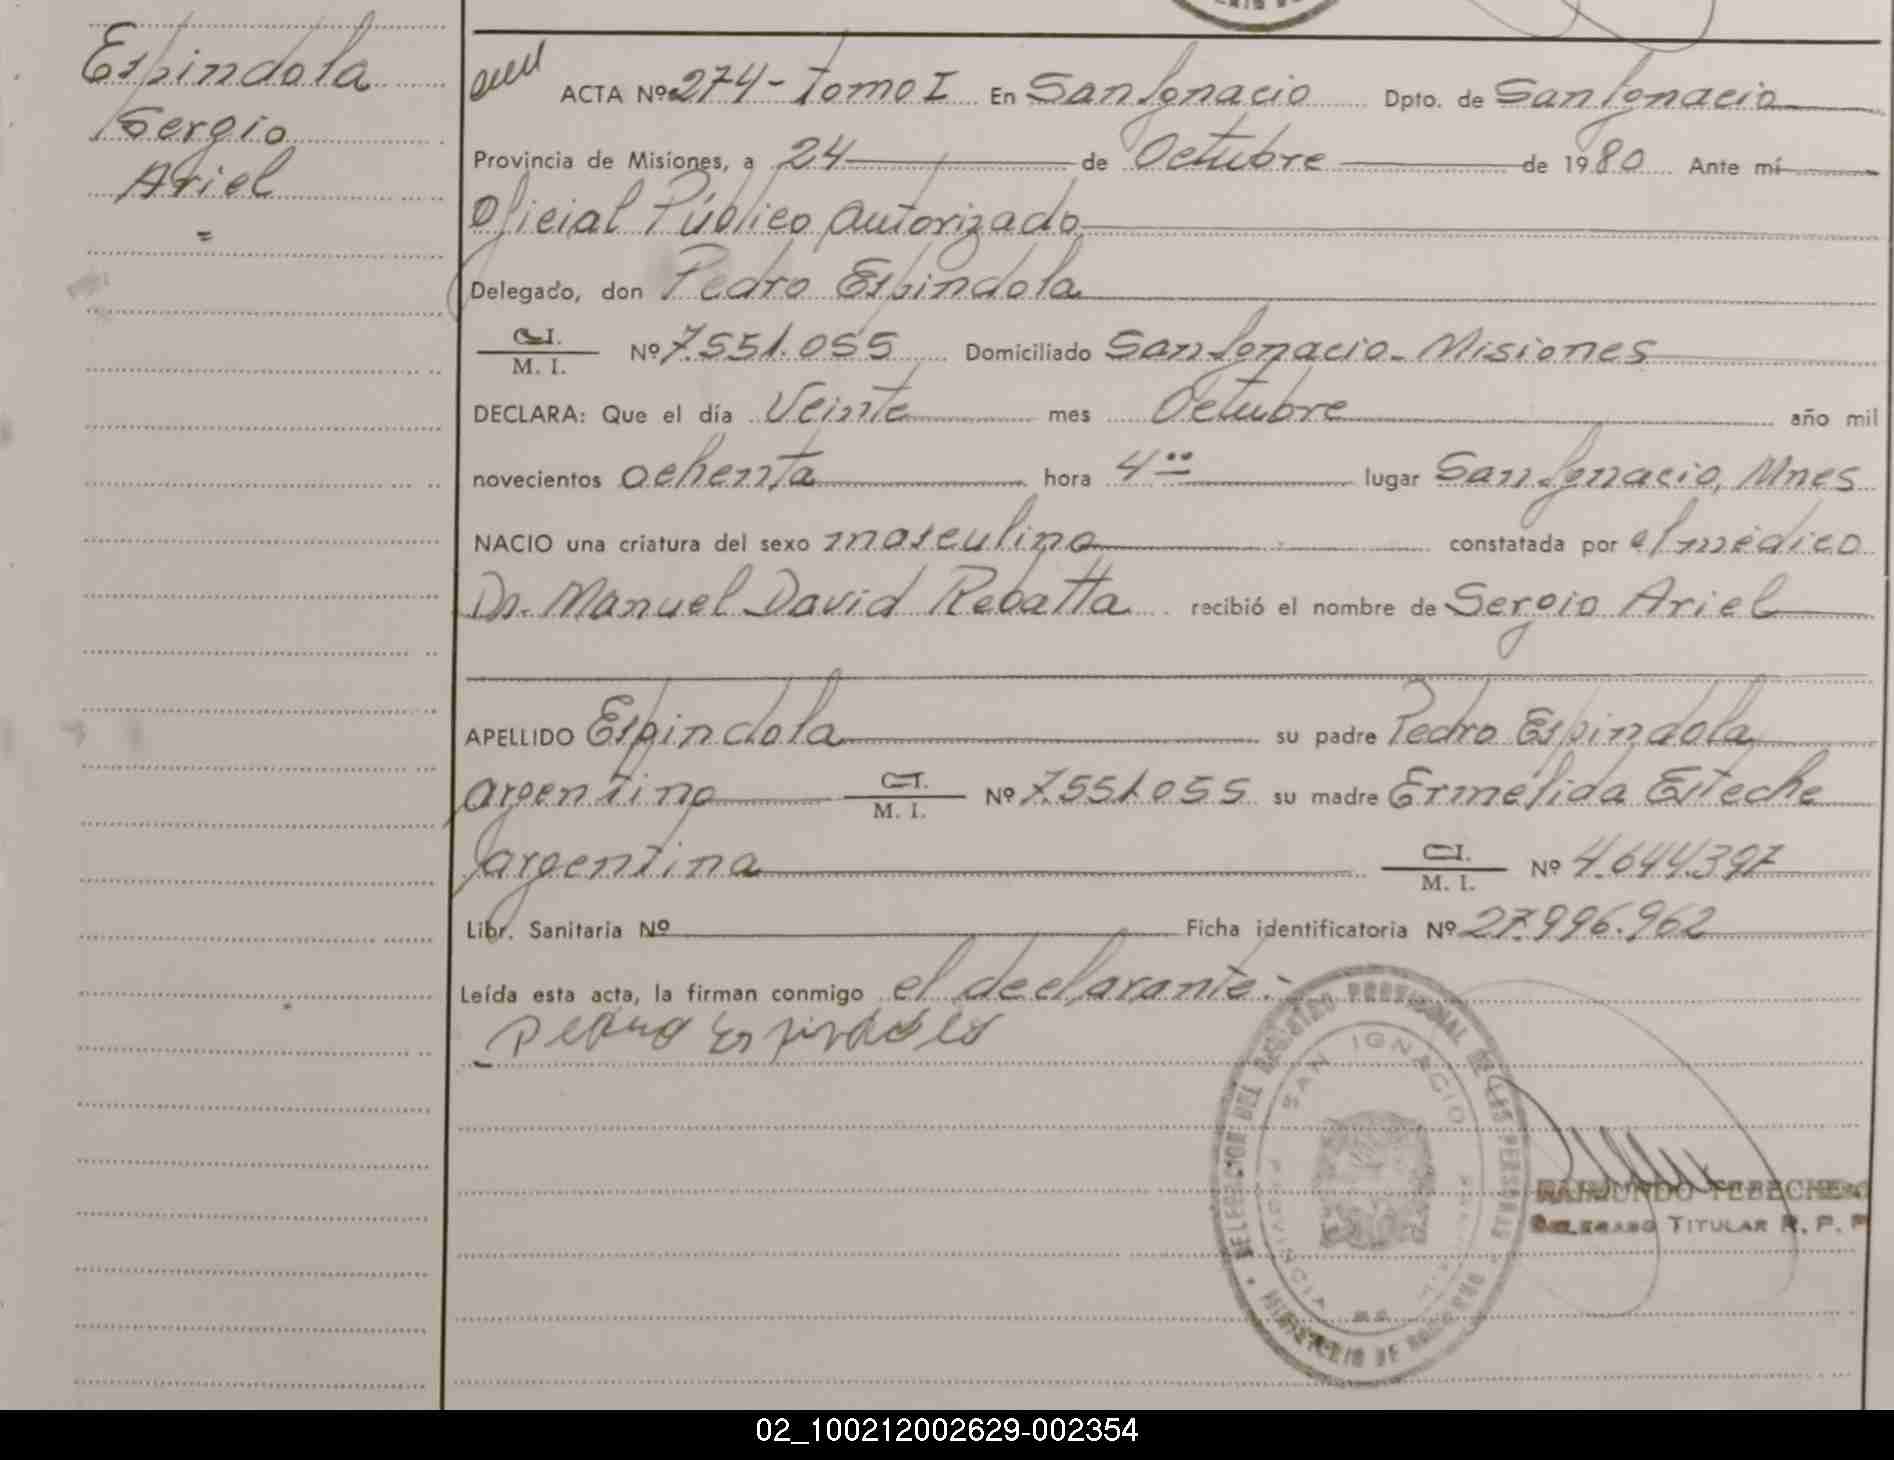 Espindola
Sergio
Ariel
=
ACTA Nº 274 - Tomo I En San Ignacio Dpto. de San Ignacio
Provincia de Misiones, a 24 de Octubre de 1980 Ante mí
Oficial Público Autorizado
Delegado, don Pedro Espindola
C.I.
M. I. Nº 7.551.055 Domiciliado San Ignacio - Misiones
DECLARA: Que el día Veinte mes Octubre año mil
novecientos ochenta hora 4 lugar San Ignacio, Mnes
NACIO una criatura del sexo masculino constatada por el médico
Dr. Manuel David Rebatta recibió el nombre de Sergio Ariel
APELLIDO Espindola su padre Pedro Espindola
argentino C.I. M. I. Nº 7.551.055 su madre Ermelida Esteche
argentina C.I. M. I. Nº 4.644.397
Libr. Sanitaria Nº Ficha identificatoria Nº 27.996.962
Leída esta acta, la firman conmigo el declarante.-
Pedro Espindola
DELEGACION DEL REGISTRO PROVINCIAL DE LAS PERSONAS
SAN IGNACIO
PROVINCIA
MINISTERIO DE GOBIERNO
RAIMUNDO
DELEGADO TITULAR R. P. P
02_100212002629-002354